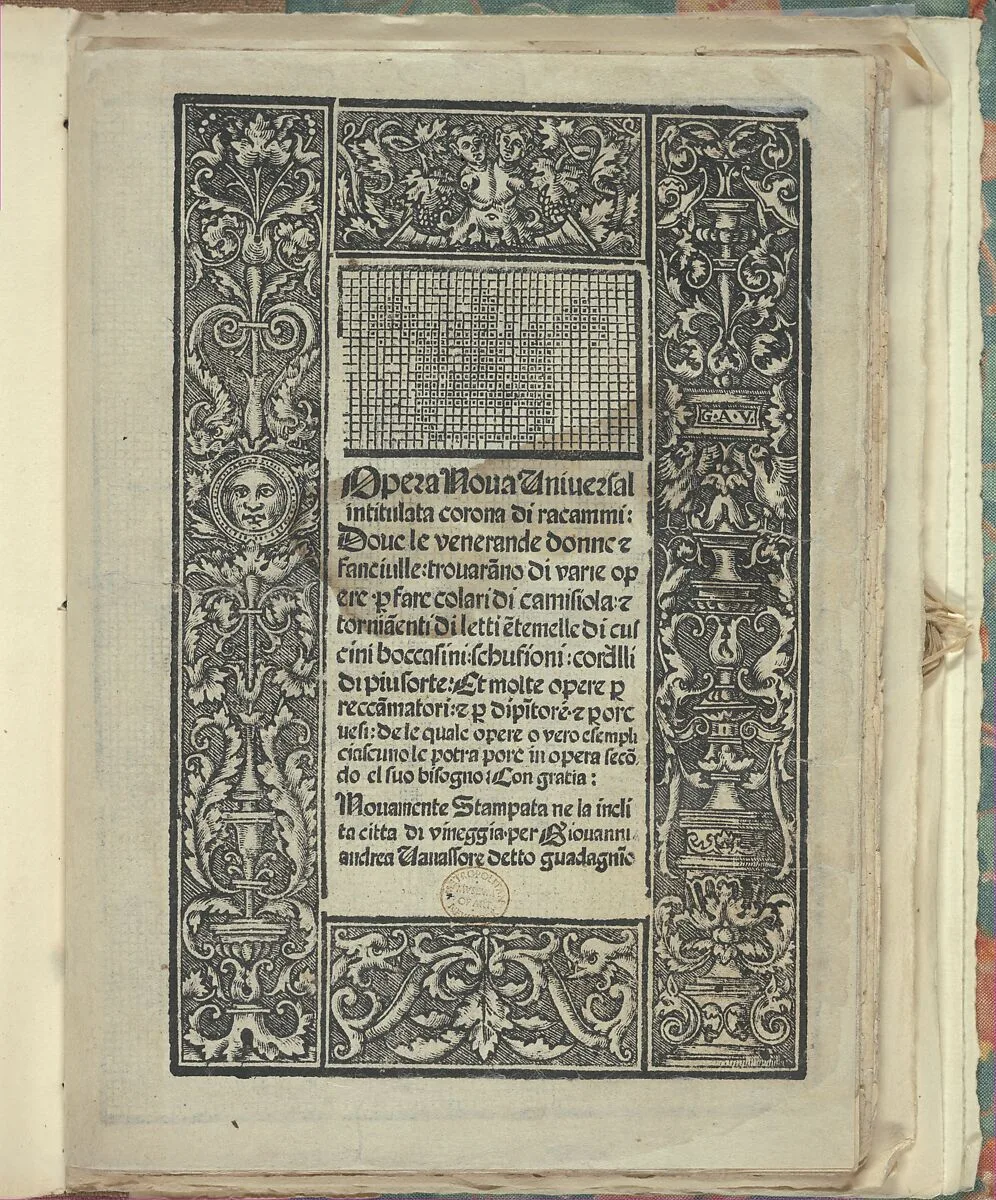 G·A·V·
Opera Noua Uniuersal
intitulata corona di racammi:
Doue le venerande donne ⁊
fanciulle:trouarãno di varie op
ere ꝑ fare colari di camisiola·⁊
torniãenti di letti ẽtemelle di cus
cini boccasini:schufioni:cordlli
di piu sorte:Et molte opere ꝑ
reccãmatori:⁊ ꝑ dipĩtore·⁊ ꝑ ore
uesi:de le quale opere o vero esempli
ciascuno le potra pore in opera secõ
do el suo bisogno:Con gratia:
Nouamente Stampata ne la incli
ta citta di vineggia·per Giouanni
andrea Uauassore detto guadagnĩo
METROPOLITAN
MUSEUM
OF ART
NEW YORK